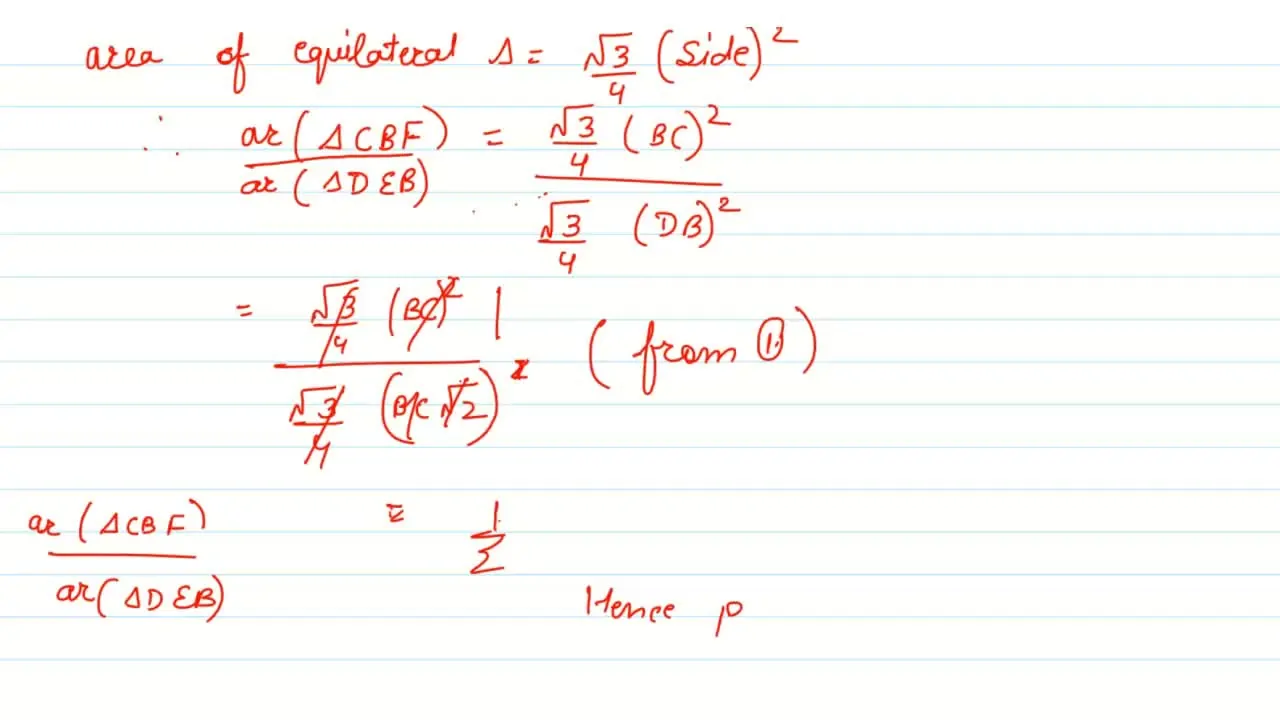 area of equilateral Δ = √3/4 (Side)²
∴ ar(ΔCBF)/ar(ΔDEB) = √3/4 (BC)² / √3/4 (DB)²
= √3/4 (BC)² 1 / √3/4 (BC√2)² (from ①)
ar(ΔCBF)/ar(ΔDEB) = 1/2
Hence p